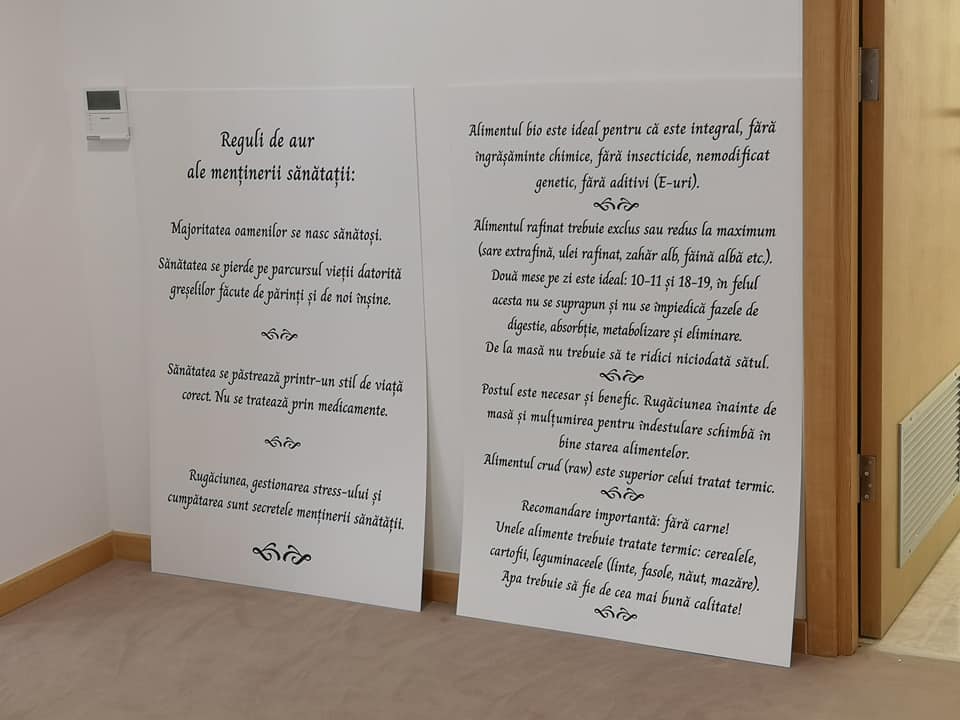 Reguli de aur
ale menținerii sănătații:
Majoritatea oamenilor se nasc sănătoși.
Sănătatea se pierde pe parcursul vieții datorită
greșelilor făcute de părinți și de noi înșine.
Sănătatea se păstrează printr-un stil de viață
corect. Nu se tratează prin medicamente.
Rugăciunea, gestionarea stress-ului și
cumpătarea sunt secretele menținerii sănătății.
Alimentul bio este ideal pentru că este integral, fără
îngrășăminte chimice, fără insecticide, nemodificat
genetic, fără aditivi (E-uri).
Alimentul rafinat trebuie exclus sau redus la maximum
(sare extrafină, ulei rafinat, zahăr alb, făină albă etc.).
Două mese pe zi este ideal: 10-11 și 18-19, în felul
acesta nu se suprapun și nu se împiedică fazele de
digestie, absorbție, metabolizare și eliminare.
De la masă nu trebuie să te ridici niciodată sătul.
Postul este necesar și benefic. Rugăciunea înainte de
masă și mulțumirea pentru îndestulare schimbă în
bine starea alimentelor.
Alimentul crud (raw) este superior celui tratat termic.
Recomandare importantă: fără carne!
Unele alimente trebuie tratate termic: cerealele,
cartofii, leguminaceele (linte, fasole, năut, mazăre).
Apa trebuie să fie de cea mai bună calitate!